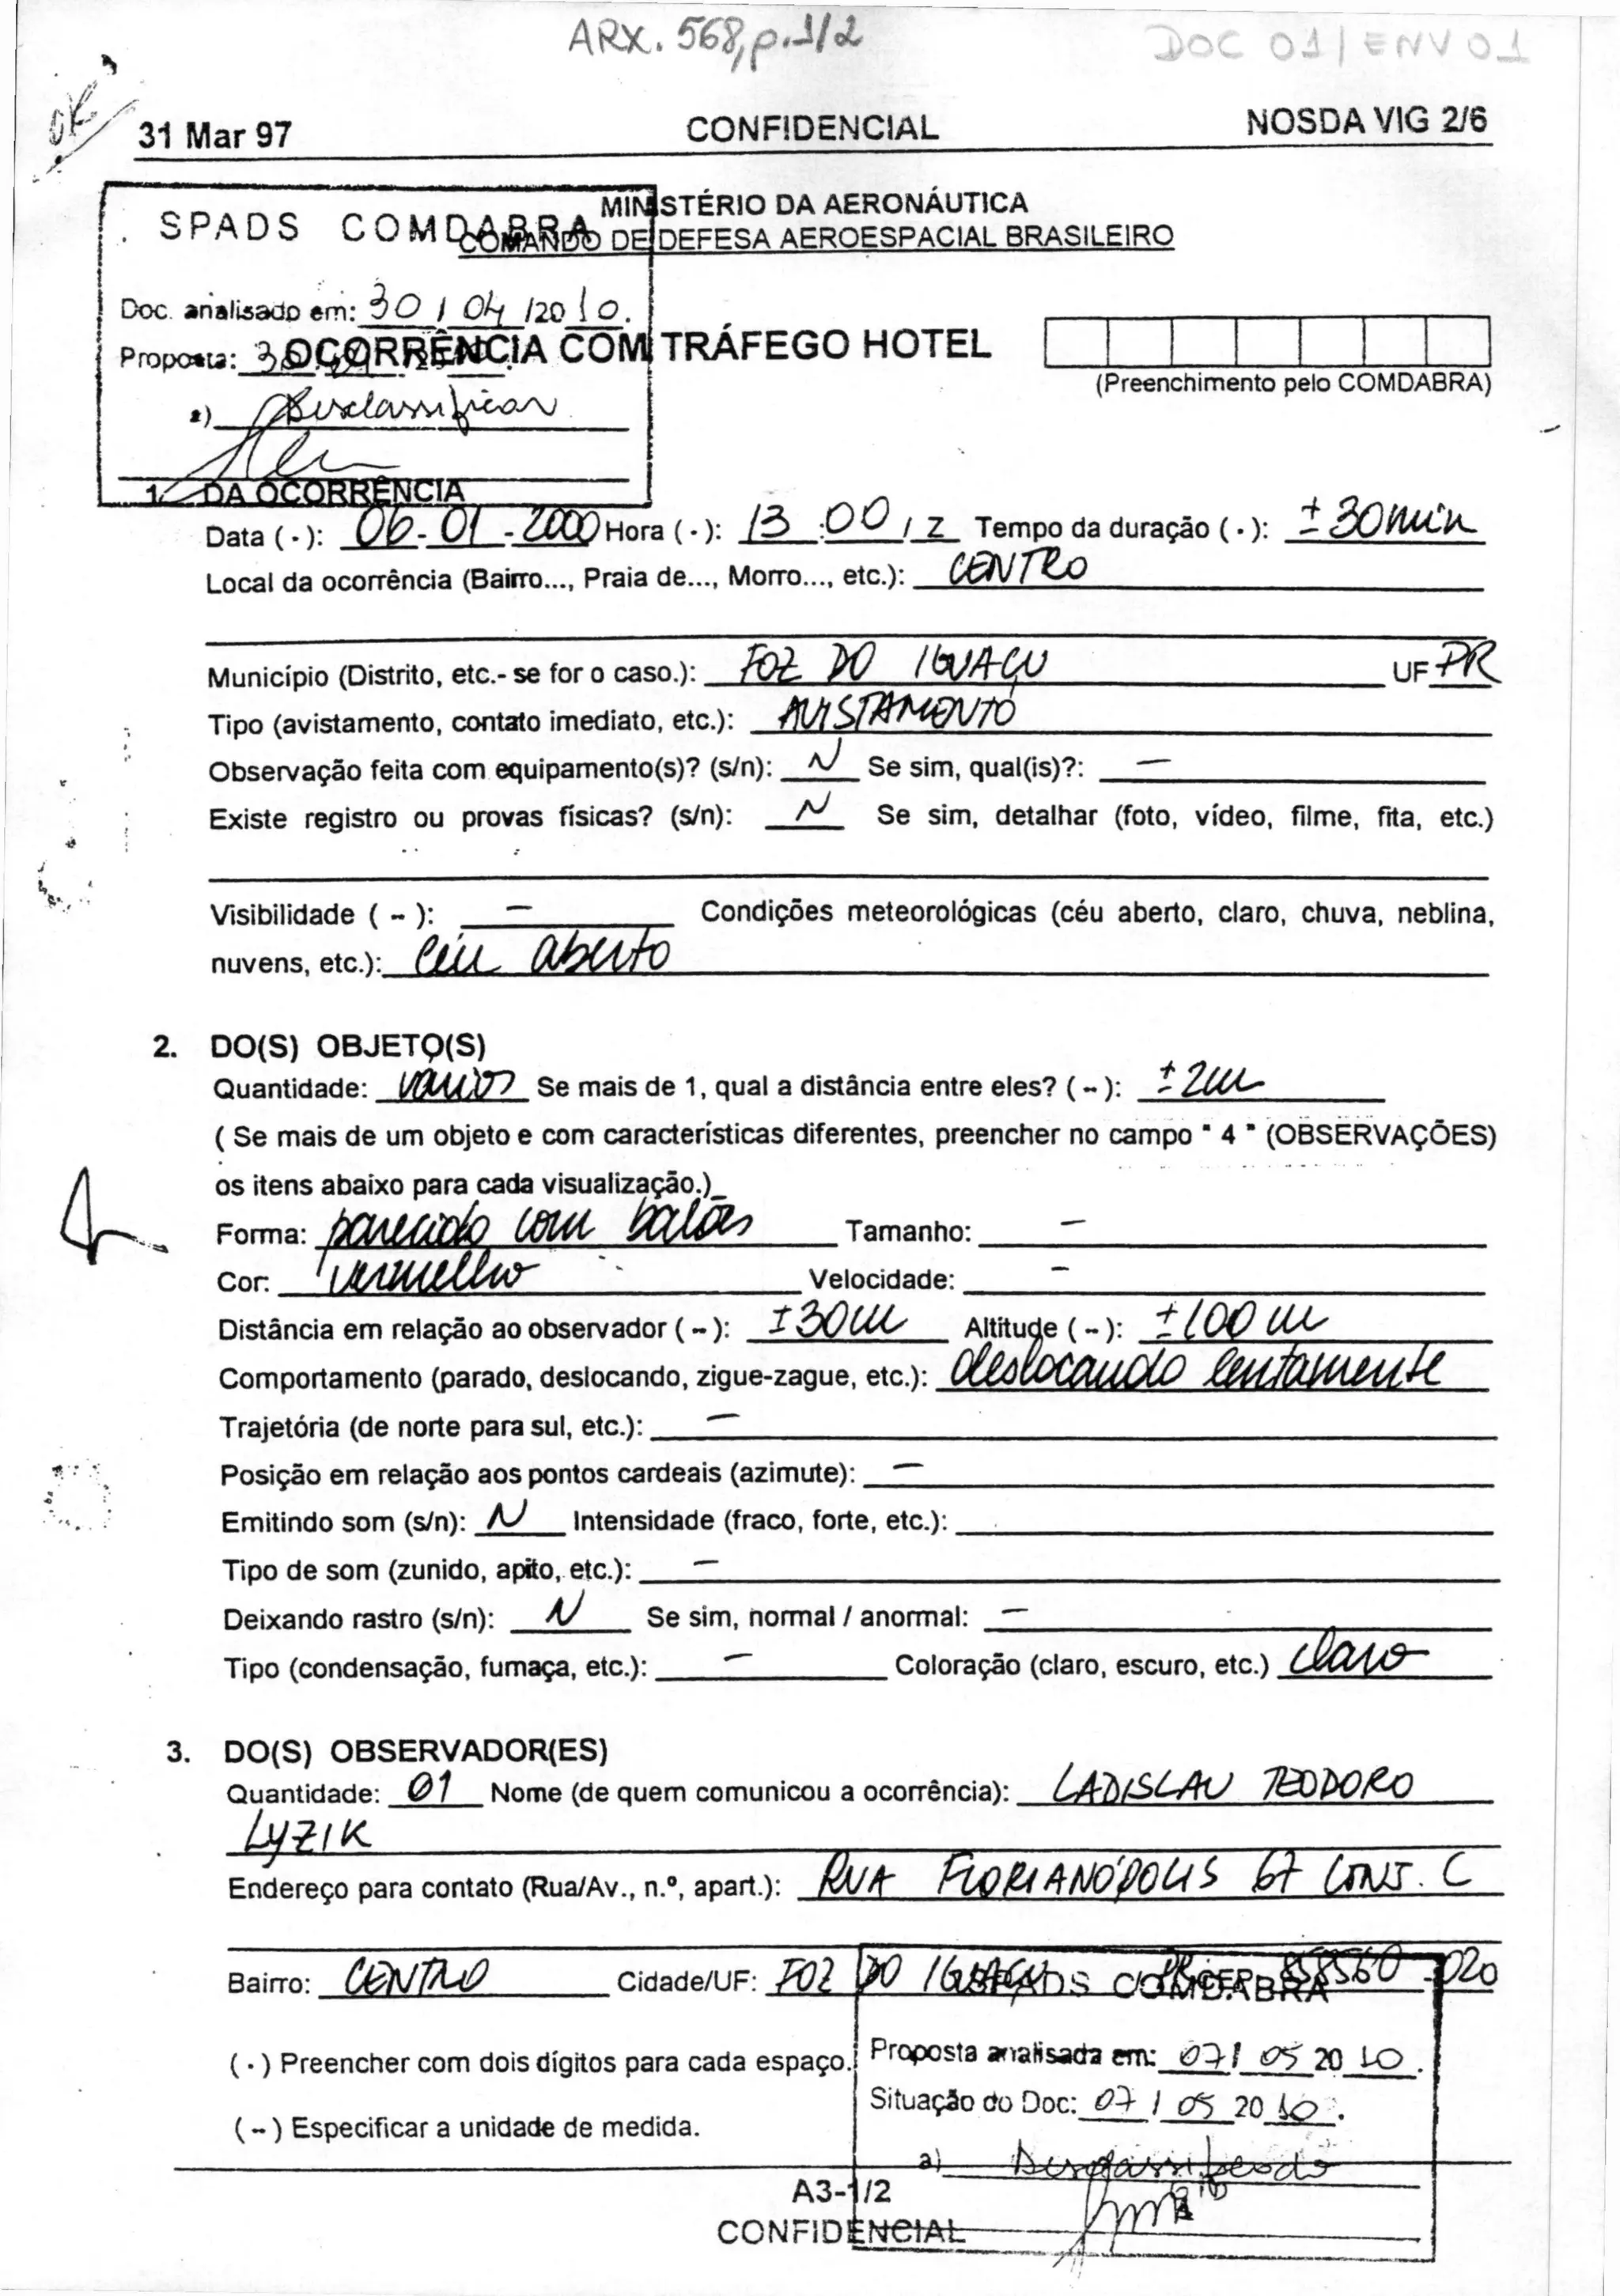 ARX. 568, p.1/2
DOC 01/ENV 01
OK
31 Mar 97 CONFIDENCIAL NOSDA VIG 2/6
MINISTÉRIO DA AERONÁUTICA
SPADS COMDABRA
COMANDO DE DEFESA AEROESPACIAL BRASILEIRO
Doc. analisado em: 30/04/2010.
OCORRÊNCIA COM TRÁFEGO HOTEL
Proposta:
(Preenchimento pelo COMDABRA)
a) Desclassificar
1. DA OCORRÊNCIA
Data (·): 06-01-2000 Hora (·): 13:00/Z Tempo da duração (·): ±30min
Local da ocorrência (Bairro..., Praia de..., Morro..., etc.): CENTRO
Município (Distrito, etc.- se for o caso.): FOZ DO IGUAÇU UF PR
Tipo (avistamento, contato imediato, etc.): AVISTAMENTO
Observação feita com equipamento(s)? (s/n): N Se sim, qual(is)?: —
Existe registro ou provas físicas? (s/n): N Se sim, detalhar (foto, vídeo, filme, fita, etc.)
Visibilidade ( - ): — Condições meteorológicas (céu aberto, claro, chuva, neblina,
nuvens, etc.): Céu aberto
2. DO(S) OBJETO(S)
Quantidade: vários Se mais de 1, qual a distância entre eles? ( - ): ±2m
( Se mais de um objeto e com características diferentes, preencher no campo " 4 " (OBSERVAÇÕES)
os itens abaixo para cada visualização.)
Forma: parecido com balões Tamanho: —
Cor: vermelho Velocidade: —
Distância em relação ao observador ( - ): ±30m Altitude ( - ): ±100m
Comportamento (parado, deslocando, zigue-zague, etc.): deslocando lentamente
Trajetória (de norte para sul, etc.): —
Posição em relação aos pontos cardeais (azimute): —
Emitindo som (s/n): N Intensidade (fraco, forte, etc.):
Tipo de som (zunido, apito, etc.): —
Deixando rastro (s/n): N Se sim, normal / anormal: —
Tipo (condensação, fumaça, etc.): — Coloração (claro, escuro, etc.) claro
3. DO(S) OBSERVADOR(ES)
Quantidade: 01 Nome (de quem comunicou a ocorrência): LADISLAU TEODORO
LYZIK
Endereço para contato (Rua/Av., n.º, apart.): RUA FLORIANÓPOLIS 67 CONJ. C
Bairro: CENTRO Cidade/UF: FOZ DO IGUAÇU PR CEP 858560-020
SPADS COMDABRA
(·) Preencher com dois dígitos para cada espaço.
Proposta analisada em: 07/05 2010.
Situação do Doc: 07/05 2010.
( - ) Especificar a unidade de medida.
a) Desclassificado
A3-1/2
CONFIDENCIAL